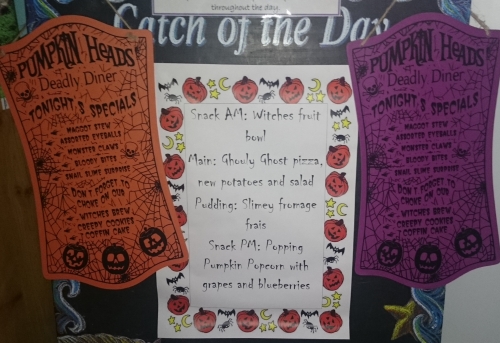 throughout the day.
Catch of the Day
PUMPKIN HEADS
Deadly Diner
TONIGHT'S SPECIALS
MAGGOT STEW
ASSORTED EYEBALLS
MONSTER CLAWS
BLOODY BITES
SNAIL SLIME SURPRISE
DON'T FORGET TO
CHOKE ON OUR
WITCHES BREW
CREEPY COOKIES
COFFIN CAKE
Snack AM: Witches fruit
bowl
Main: Ghouly Ghost pizza,
new potatoes and salad
Pudding: Slimey fromage
frais
Snack PM: Popping
Pumpkin Popcorn with
grapes and blueberries
PUMPKIN HEADS
Deadly Diner
TONIGHT'S SPECIALS
MAGGOT STEW
ASSORTED EYEBALLS
MONSTER CLAWS
BLOODY BITES
SNAIL SLIME SURPRISE
DON'T FORGET TO
CHOKE ON OUR
WITCHES BREW
CREEPY COOKIES
COFFIN CAKE